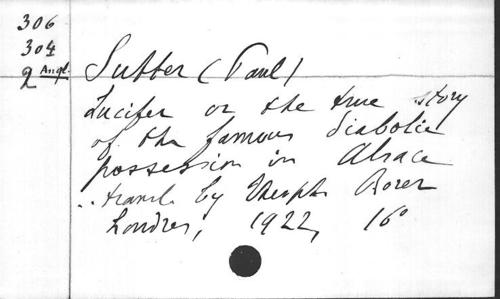 306
304
2 Angl.
Sutter (Paul)
Lucifer or the true story
of the famous diabolic
possession in Alsace
.. transl. by Theoph. Borer
Londres, 1922, 16°